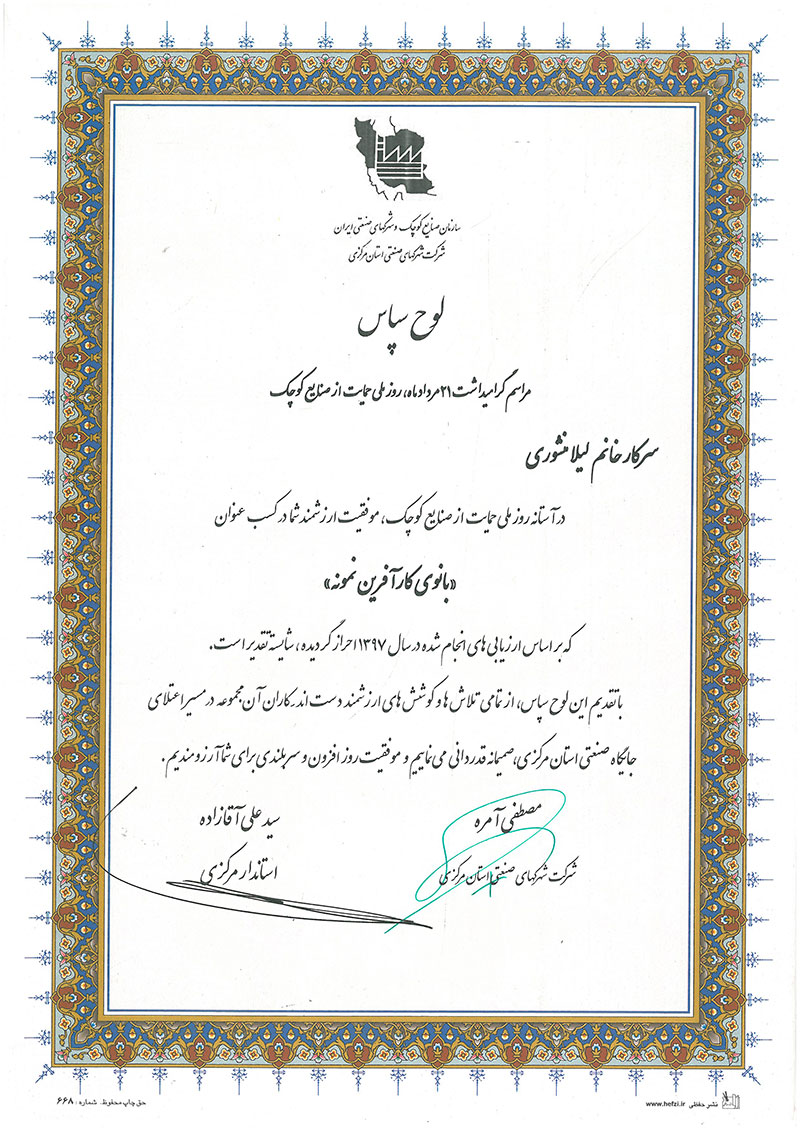 سازمان صنایع کوچک و شهرکهای صنعتی ایران
شرکت شهرکهای صنعتی استان مرکزی
لوح سپاس
مراسم گرامیداشت ۲۱ مرداد ماه، روز ملی حمایت از صنایع کوچک
سرکار خانم لیلا منشوری
در آستانه روز ملی حمایت از صنایع کوچک، موفقیت ارزشمند شما در کسب عنوان
«بانوی کارآفرین نمونه»
که بر اساس ارزیابی های انجام شده در سال ۱۳۹۷ احراز گردیده، شایسته تقدیر است.
با تقدیم این لوح سپاس، از تمامی تلاش ها و کوشش های ارزشمند دست اندرکاران آن مجموعه در مسیر اعتلای
جایگاه صنعتی استان مرکزی، صمیمانه قدردانی می نماییم و موفقیت روز افزون و سربلندی برای شما آرزومندیم.
مصطفی آمره
شرکت شهرکهای صنعتی استان مرکزی
سید علی آقازاده
استاندار مرکزی
نشر حفظی www.hefzi.ir
حق چاپ محفوظ. شماره: ۶۶۸